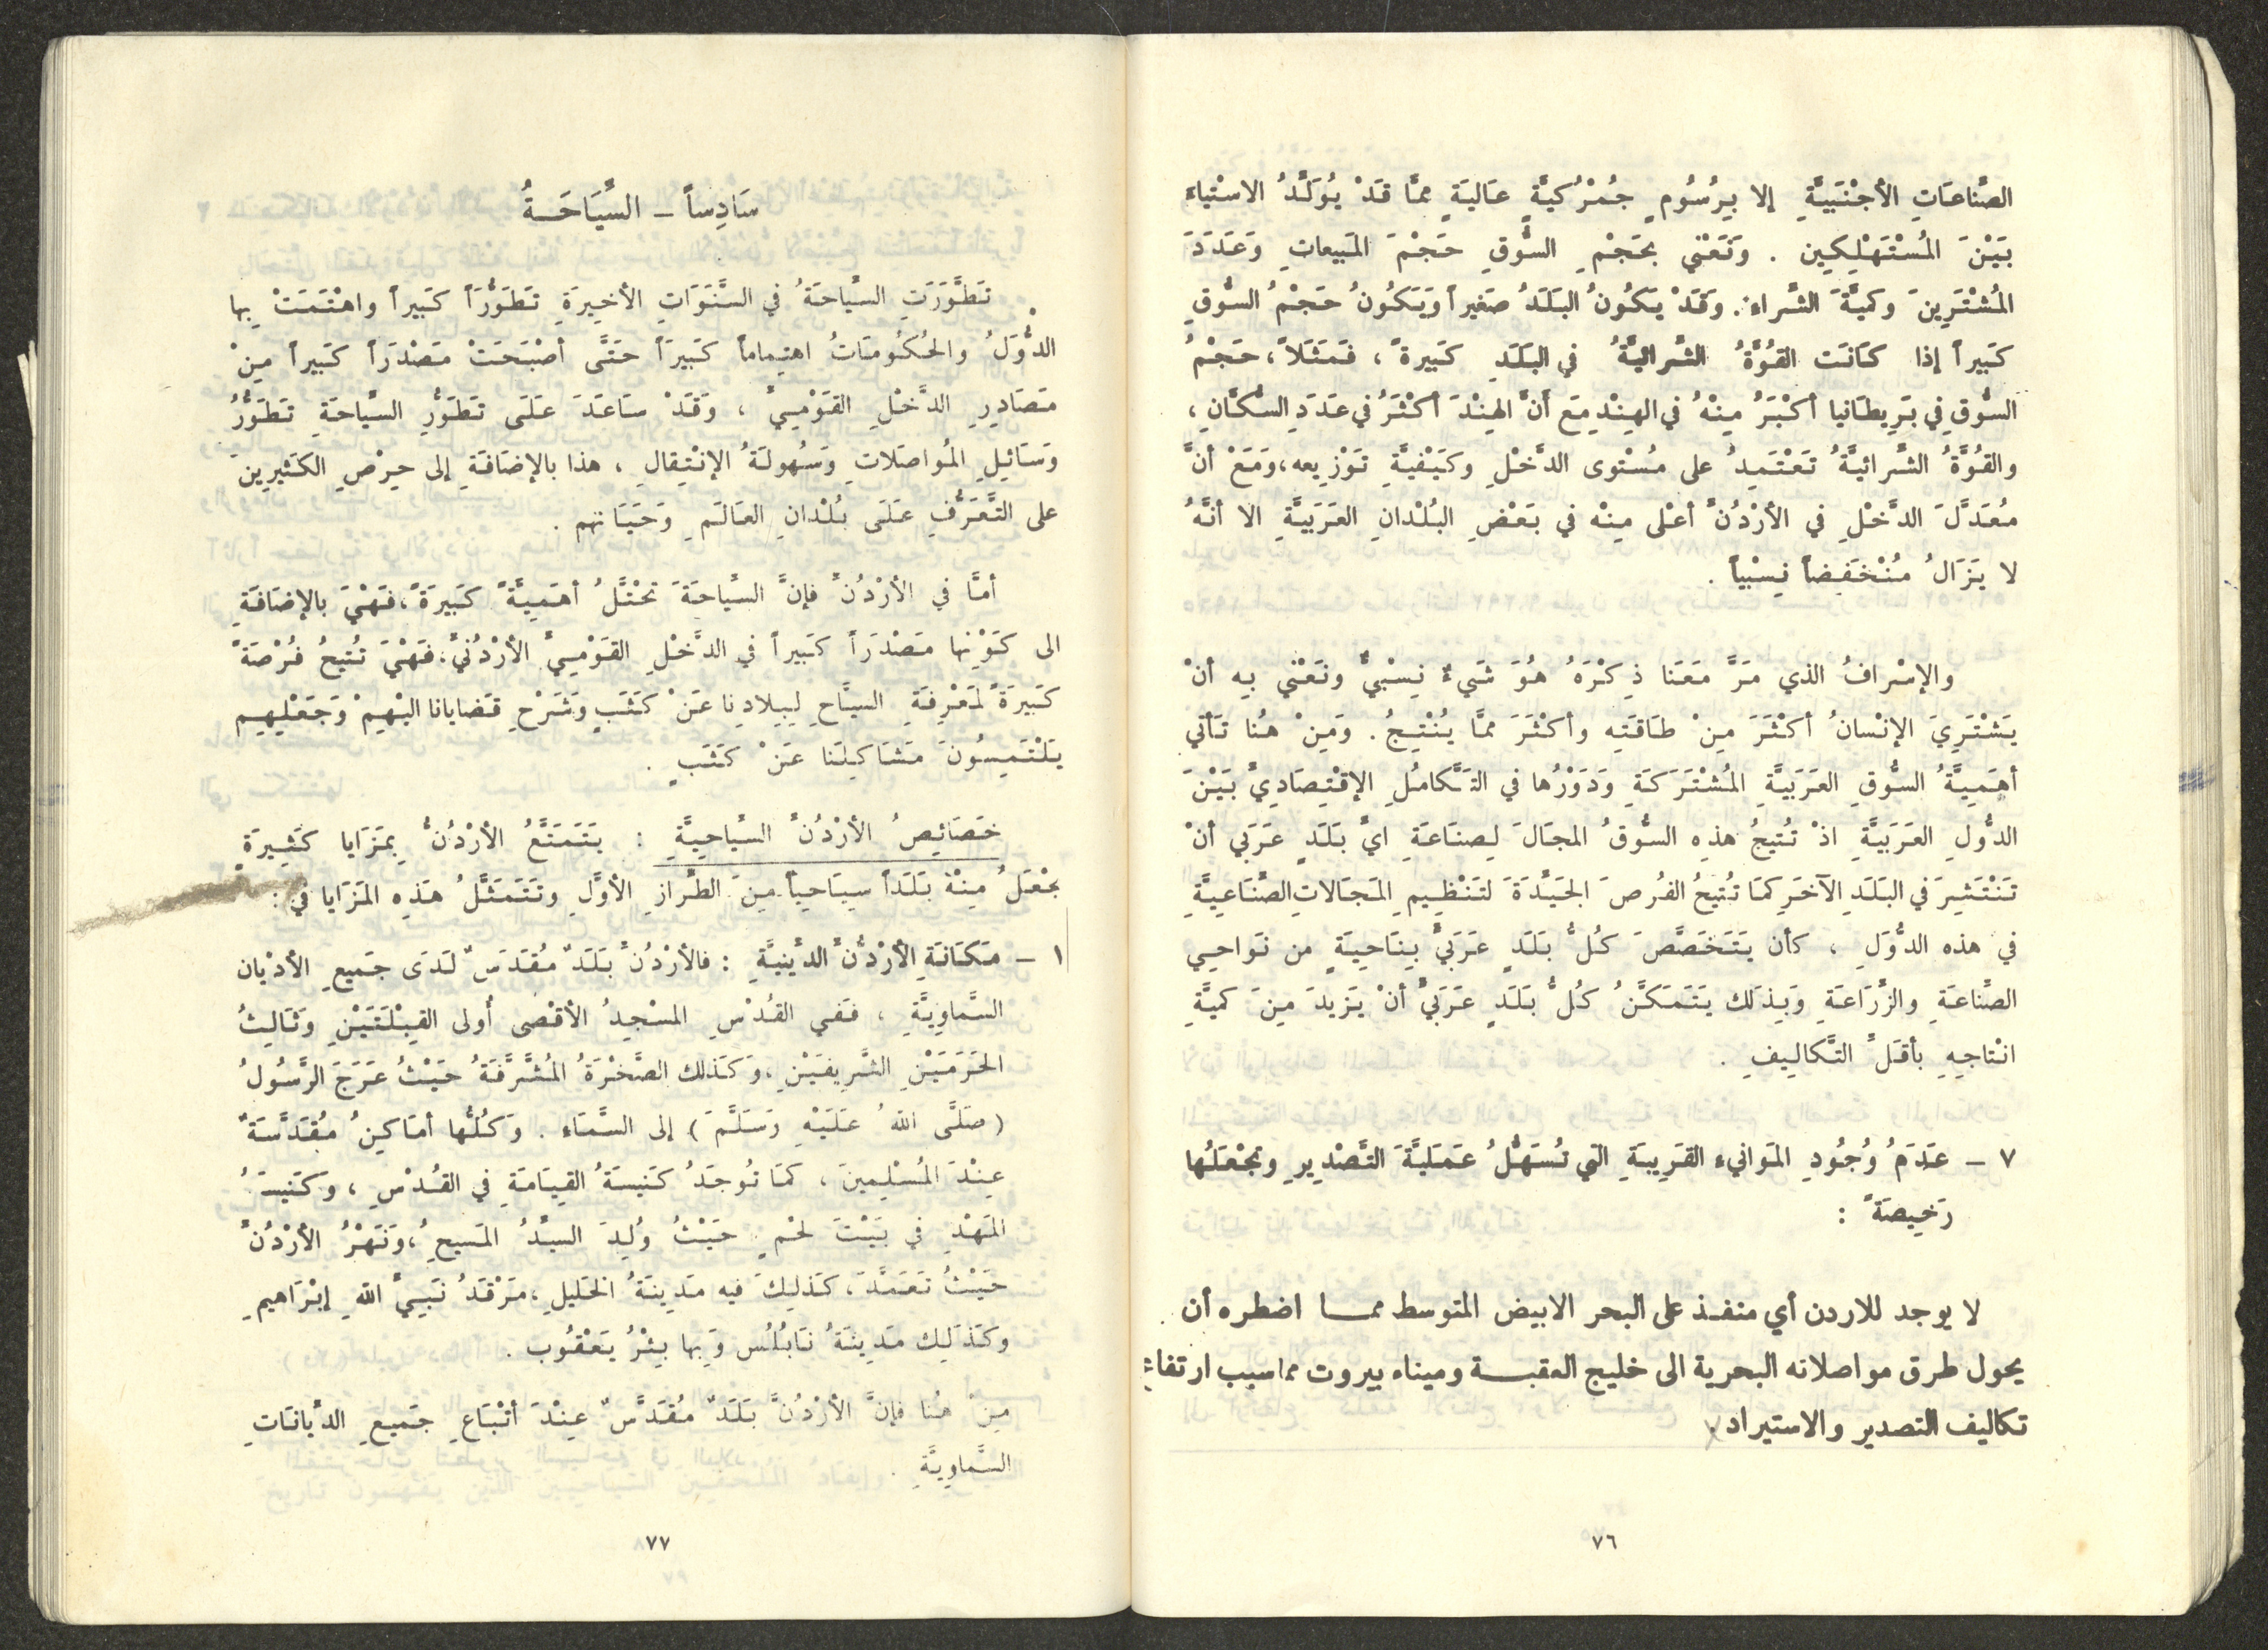 الصِّناعَاتِ الأجْنَبيَّةِ إلا بِرُسُومٍ جُمْرُكيَّةٍ عَاليَةٍ ممَّا قَدْ يُوَلِّدُ الاسْتياءَ
بَيْنَ المُسْتَهْلِكِين . وَنَعْني بحَجْمِ السُّوقِ حَجْمَ المَبيعاتِ وَعَدَدَ
المُشْتَرِينَ وكميَّةَ الشِّراء. وَقَدْ يَكُونُ البَلَدُ صَغيراً وَيَكُونُ حَجْمُ السُّوقِ
كَبيراً إذا كَانَت القُوَّةُ الشِّرائيَّةُ في البَلَدِ كَبيرةً ، فَمَثَلاً، حَجْمُ
السُّوقِ في بَرِيطَانيا أكْبَرُ مِنْهُ في الهِنْدِ مَع أَنَّ الهِنْدَ أكْثَرُ في عَدَدِ السُّكَّانِ ،
والقُوَّةُ الشِّرائيَّةُ تَعْتَمِدُ على مُسْتوى الدَّخْلِ وكَيَفْيَّةِ تَوْزِيعه، وَمَعَ أنَّ
مُعَدَّلَ الدَّخْلِ في الأرْدُنِّ أعْلى مِنْه في بَعْضِ البُلْدانِ العَرَبيَّةِ الا أنَّهُ
لا يَزَالُ مُنْخَفِضاً نِسْبياً .
والإسْرافُ الذي مَرَّ مَعَنا ذِكْرَهُ هُوَ شَيءٌ نِسْبيٌّ ونَعْني بِه أنْ
يَشْتَرِيَ الإنْسانُ أكْثَرَ مِنْ طَاقَتِه وأكْثَرَ ممَّا يُنْتِجُ . وَمِنْ هُنا تَأتي
أهَمِيَّةُ السُّوقِ العَرَبيَّةِ المُشْتَرَكَةِ وَدَوْرُها في التَّكامُلِ الإقْتِصَادِيِّ بَيْنَ
الدُّولِ العَرَبيَّةِ اذْ تُتيحُ هذِه السُّوقُ المجَالَ لِصنَاعَةِ ايِّ بَلَدٍ عَرَبي أنْ
تَنْتَشِرَ في البَلَدِ الآخَرِ كمَا تُتيحُ الفُرصَ الجَيِّدَةَ لتَنْظِيمِ المَجَالاتِ الصِّنَاعِيَّةِ
في هذه الدُّوَلِ ، كأن يَتَخَصَّصَ كُلُّ بَلَدٍ عَرَبيٍّ بِنَاحِيَةٍ من نَواحِي
الصِّناعَةِ والزِّرَاعَةِ وَبِذلَك يَتَمَكَّنُ كُلُّ بَلَدٍ عَرَبيٍّ أنْ يَزيدَ مِنَ كميَّةِ
انْتاجِهِ بأقَلِّ التَّكالِيفِ .
٧ - عَدَمُ وُجُودِ المَوانيء القَرِيبَةِ التي تُسَهِّلُ عَمَليَّةَ التَّصْدِيرِ وتَجْعَلُها
رَخيصَةً :
لا يوجد للاردن أي منفذ على البحر الابيض المتوسط مما اضطره أن
يحول طرق مواصلاته البحرية الى خليج العقبة وميناء بيروت مما سبب ارتفاع
تكاليف التصدير والاستيراد .
٧٦
سَادِساً - السِّيَاحَةُ
تَطَّوَرَتِ السِّياحَةُ في السَّنَوَاتِ الأخِيرَةِ تَطَوُّرَاً كَبيراً واهْتَمَتْ بِها
الدُّوَلُ والحُكُومَاتُ اهتِماماً كَبيرَاً حَتَّى أصْبَحَتْ مَصْدَرَاً كَبيراً مِنْ
مَصَادِرِ الدَّخْلِ القَوْمِيِّ ، وَقَدْ سَاعَدَ عَلَى تَطَوُّرِ السِّياحَةِ تَطَوُّرُ
وَسَائِلِ المُواصَلاتِ وَسُهولَةُ الإنْتِقالِ ، هذا بالإضَافَةِ إلى حِرْصِ الكَثيرِينَ
على التَّعَرُّفِ عَلَى بُلْدانِ العَالَمِ وَحَيَاتهم .
أمَّا في الأرْدُنِّ فإنَّ السِّياحَةَ تَحْتَلُّ أهَمِيَّةً كَبيرَةً، فَهْيَ بالإضَافَةِ
الى كَوْنِها مَصْدَرَاً كَبيراً في الدَّخْلِ القَوْمِيِّ الأرْدُنيِّ، فَهْيَ تُتيحُ فُرْصَةً
كَبيرَةً لمَعْرِفَةِ السيَّاحِ لِبِلادِنا عَنْ كَثَبٍ وَشَرْحِ قَضايانا اليْهِمْ وَجَعْلِهِم
يَلْتَمِسُونَ مَشَاكِلَنا عَنْ كَثَبٍ .
خَصَائِصُ الأرْدُنِّ السِّياحِيَّةِ : يَتَمَتَّعُ الأرْدُنُّ بِمَزَايا كَثِيرَةٍ
تجْعَلُ مِنْهُ بَلَدَاً سِيَاحِيَاً مِنَ الطِّرازِ الأوَّلِ وتَتَمَثَّلُ هَذِه المَزَايا في :
١ - مَكَانَةِ الأرْدُنِّ الدِّينيَّةِ : فالأرْدُنُّ بَلَدٌ مُقَدَسٌ لَدَى جَميعِ الأدْيان
السَّماوِيَّةِ ، فَفي القُدْسِ المسْجِدُ الأقْصى أُولى القِبْلَتَيْنِ وَثَالِثُ
الحَرَمَيْنِ الشَّرِيفَيْنِ، وَكَذلك الصَّخْرَةُ المُشَّرَّفَةُ حَيْثُ عَرَجَ الرَّسُولُ
(صَلَّى اللهُ عَلَيْهِ وَسَلَّمَ) إلى السَّمَاء . وَكُلُّها أمَاكِنُ مُقَدَّسَةٌ
عِنْدَ المُسْلِمينَ ، كمَا تُوجَدُ كَنيسَةُ القِيَامَةِ في القُدْسِ ، وَكَنيسَةُ
المَهْدِ في بَيْتَ لحْمٍ حَيْثُ وُلِدَ السيِّدُ المَسيحِ، وَنَهْرُ الأرْدُنِّ
حَيْثُ تَعَمَّدَ، كَذلِكَ فيه مَدِينَةُ الخَليلِ، مَرْقَدُ نَبِيِّ اللهِ إبْرَاهيمِ
وكَذَلِك مَدِينَةُ نَابُلُس وَبِها بِئْرُ يَعْقُوب .
مِنْ هُنا فإنَّ الأرْدُنَّ بَلَدٌ مُقَدَّسٌ عِنْدَ أتْبَاعِ جَميعِ الدِّيانَاتِ
السَّماوِيَّةِ .
٧٧